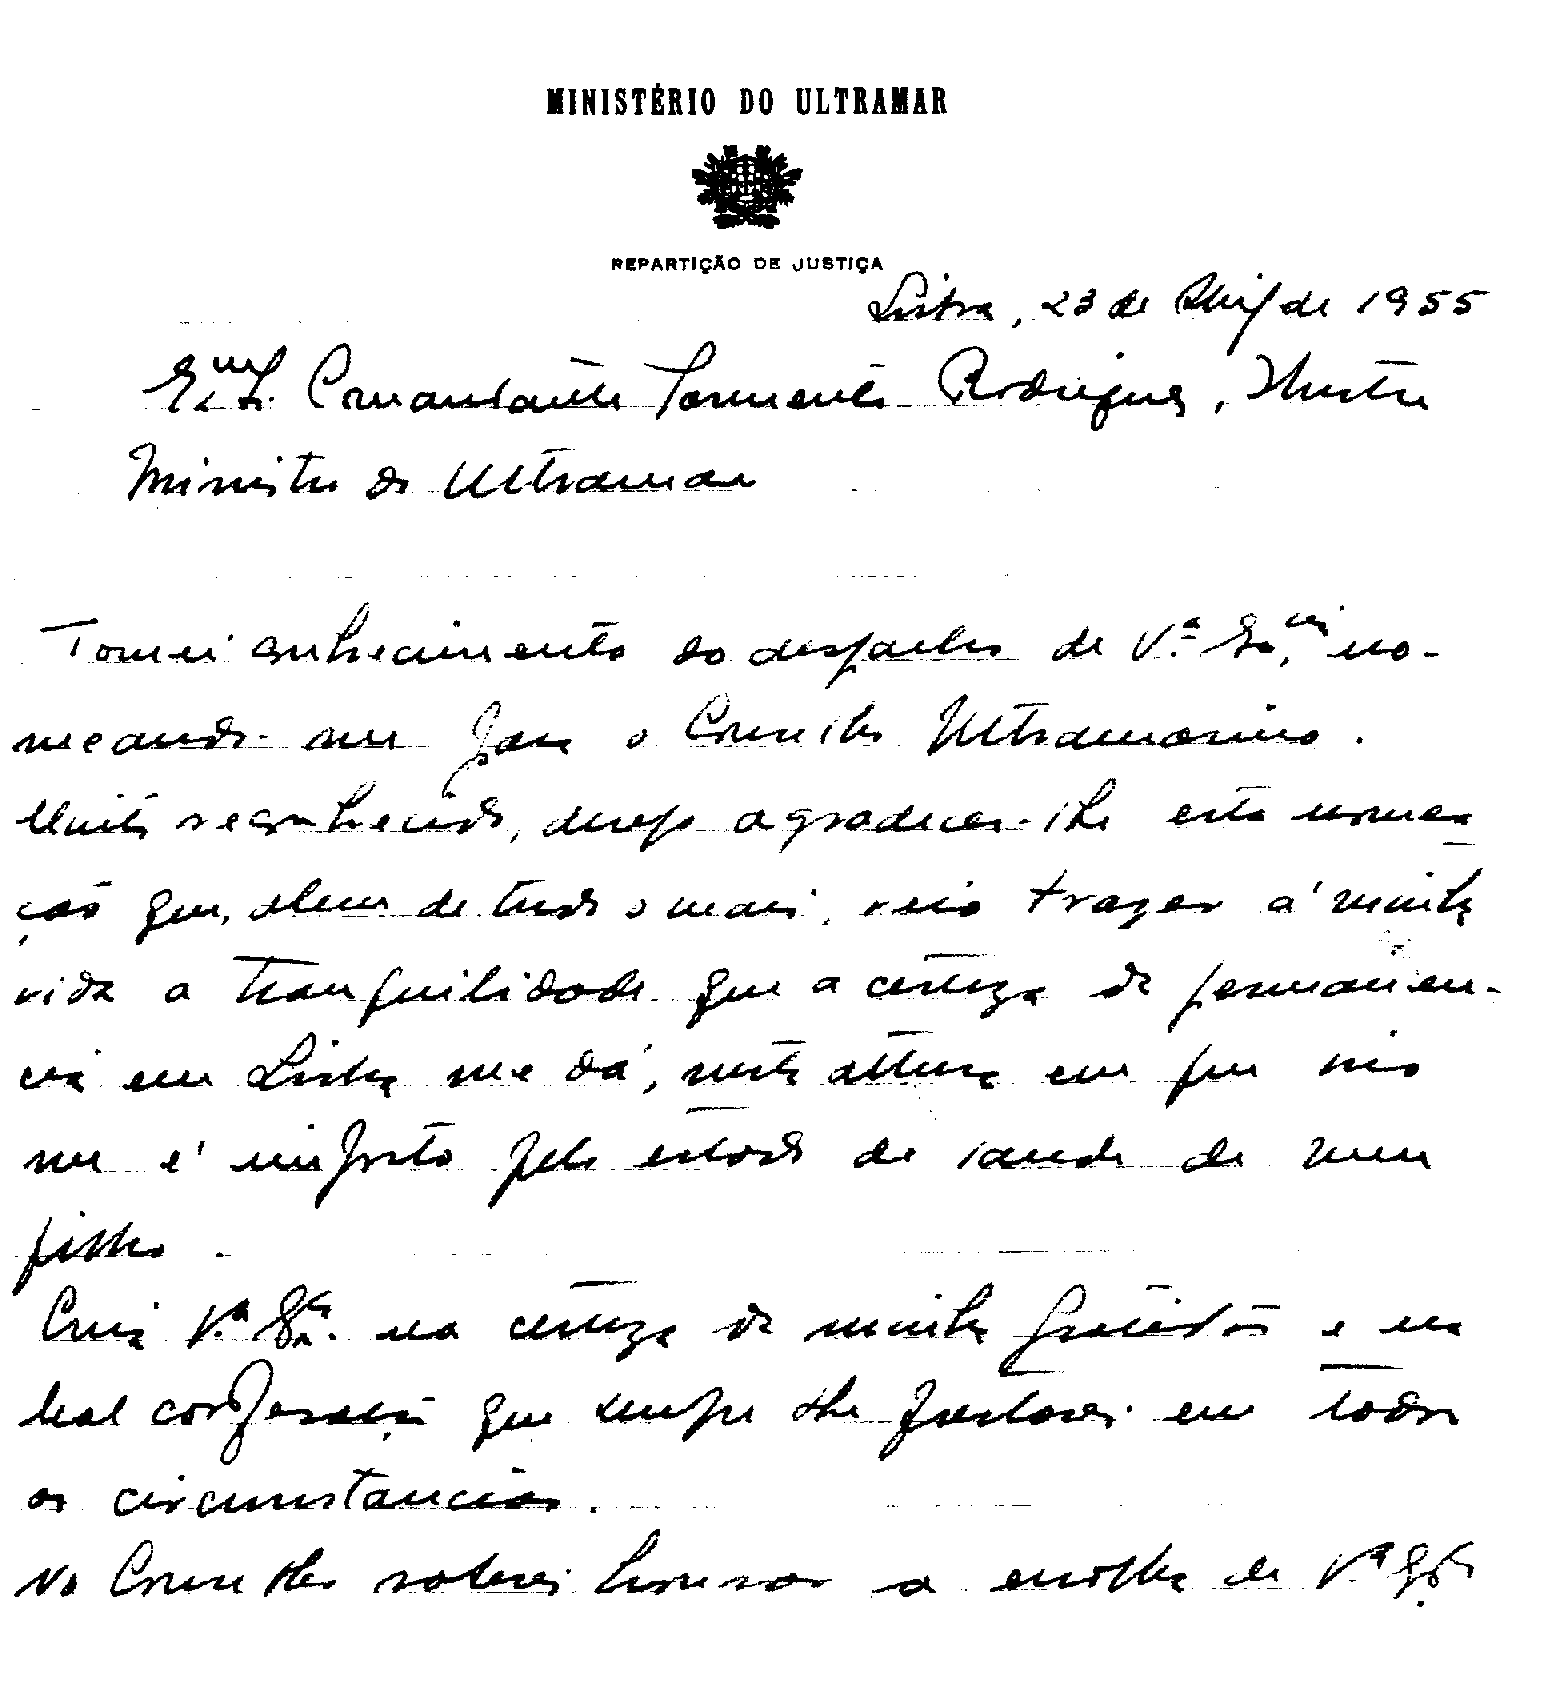 MINISTÉRIO DO ULTRAMAR
REPARTIÇÃO DE JUSTIÇA
Lisboa, 23 de Abril de 1955
Comandante Sarmento Rodrigues, Ilustre
Ministro do Ultramar
Tomei conhecimento do despacho de V.ª Ex.cia no-
meando-me para o Conselho Ultramarino.
Muito reconhecido, desejo agradecer-lhe esta nomea
ção que, alem de tudo o mais, veio trazer á minha
vida a tranquilidade que a certeza de permanen-
cia em Lisboa me dá, nesta altura em que isso
me é imposto pelo estado de saude de meu
filho.
Creia V.ª Ex.cia na certeza da minha gratidão e na
leal cooperação que sempre lhe prestarei em todas
as circunstancias.
No Conselho saberei honrar a escolha de V.ª Ex.cia